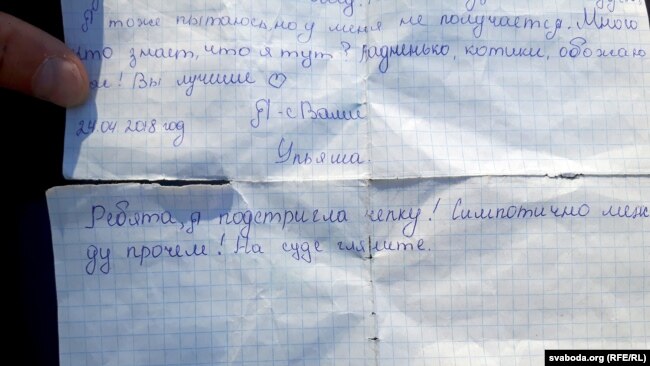 Я тоже пытаюсь, но у меня не получается. Много
что знает, что я тут? Ладненько, котики, обожаю
! Вы лучшие ♡
Я - с Вами
24.04 2018 год
Ульяша.
Ребята, я подстригла челку! Симпотично меж
ду прочем! На суде гляните.
svaboda.org (RFE/RL)